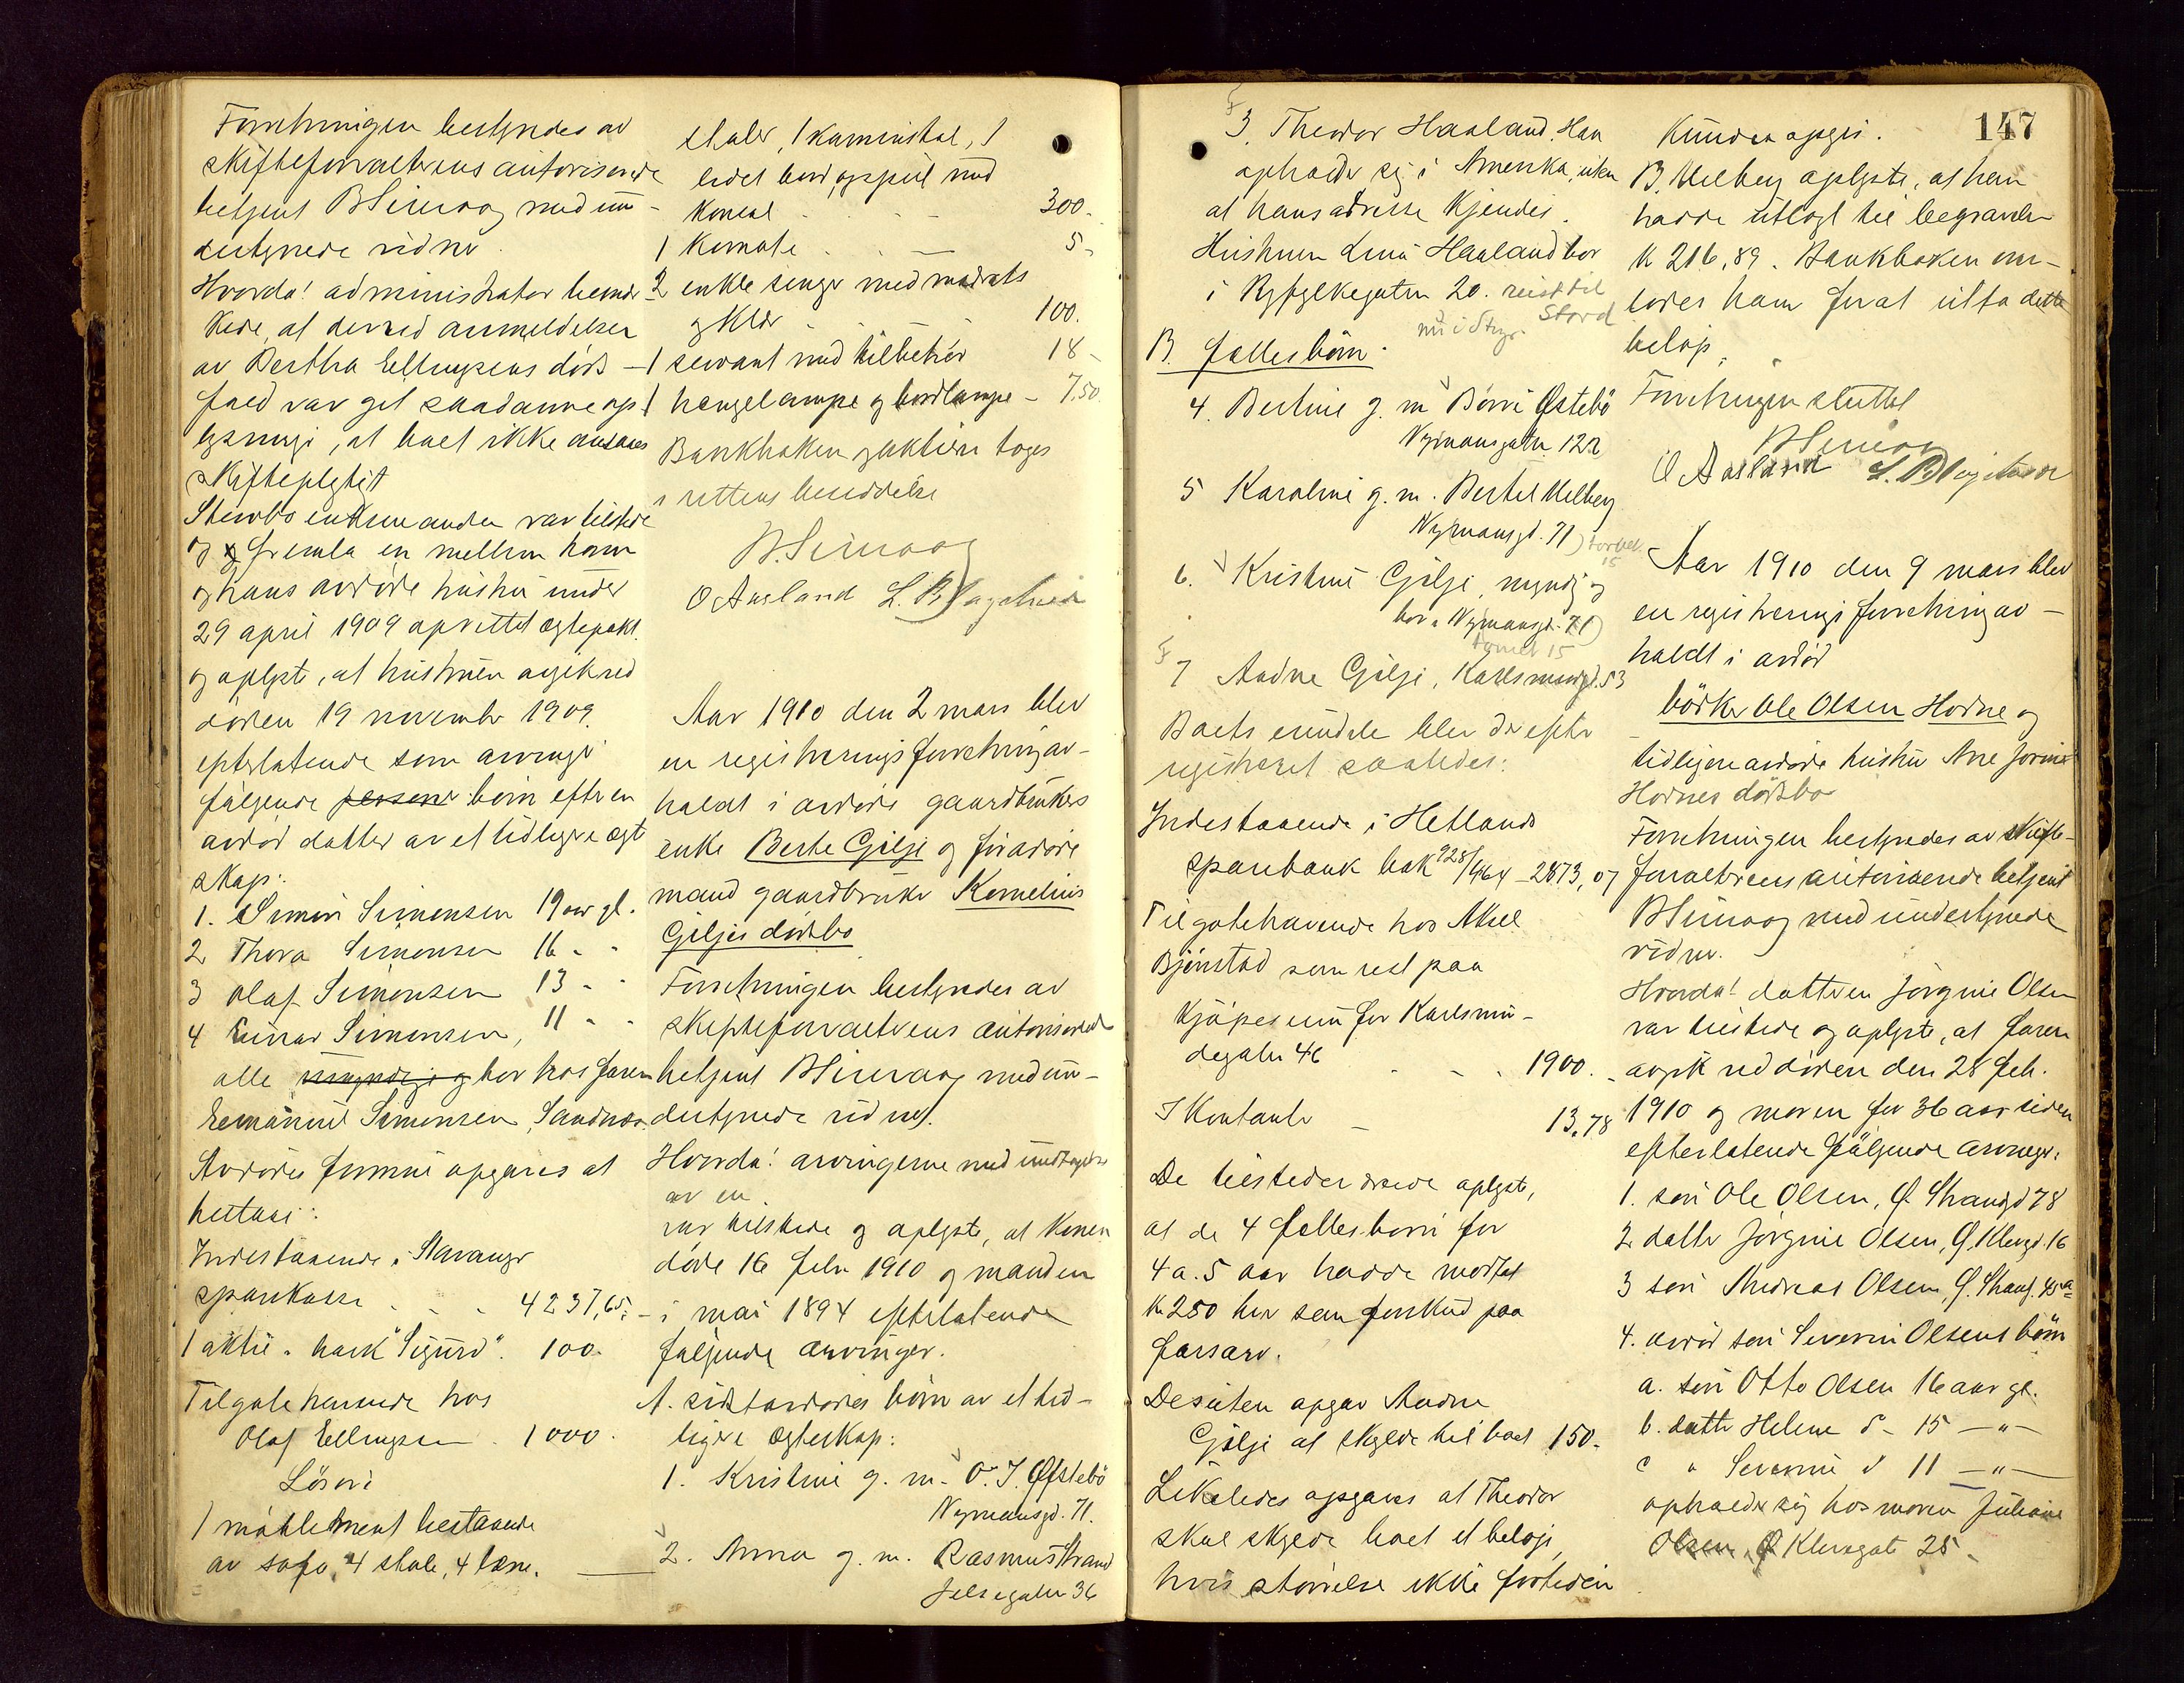 Forretningen bestyredes av
skifteforvalterens autoriserede
betjent B Simvaag med un-
dertegnede vidner.
Hvorda! administrator bemær-
kede, at derved anmeldelsen
av Bertha Ellingsens døds-
fald var git saadanne op-
lysninge, at boet ikke ansaaes
skiftepligtigt
Stervboenkemanden var tilstede
og fremla en mellem ham
og hans avdøde hustru under
29 april 1909 oprettet ægtepakt.
og oplyste, at hustruen avgik ved
døden 19 november 1909.
efterlatende som arvinge
følgende persone børn efter en
avdød datter av et tidligere ægt
skap:
1. Simon Simonsen 19 aar gl.
2 Thora Simonsen 16 " "
3 Olaf Simonsen 13 " "
4 Einar Simonsen, 11 " "
alle myndige og bor hos faren
Emanuel Simonsen, Sandnes.
Avdødes formue opgaves at
bestaa i:
Indestaaende i Stavanger
sparekasse . . . 4237,65.
1 aktie i bark "Sigurd". 100.
Tilgodehavende hos
Olaf Ellingsen . 1000.
Løsøre
1 møblement bestaaende
av sofa, 4 stole, 4 læne.
stoler, 1 kaminstol, 1
ledet bord, og speil med
konsol . . - 300.
1 komode . . - 5.
2 enkle senge med madrats
og klær . . . 100.
1 servant med tilbehør 18 -
1 hængelampe og bordlampe - 7,50
Bankboken og aktien toges
i rettens besiddelse
B. Simvaag
O Aasland L. B.
Aar 1910 den 2 mars blev
en registreringsforretning av-
holdt i avdøde gaardbrukers
enke Berte Gilje og før avdøde
mand gaardbruker Kornelius
Giljes dødsbo
Forretningen bestyredes av
skifteforvalterens autoriserede
betjent B Simvaag med un-
dertegnede vidner.
Hvorda! arvingerne med undtagelse
av en
var tilstede og oplyste, at konen
døde 16 febr 1910 og manden
i mai 1894 efterlatende
følgende arvinger.
A. sidstavdødes børn av et tid-
ligere ægteskap:
1. Kristine g. m. O. J. Øfstebø
Nymansgd. 71.
2. Anna g. m. Rasmus Strand
Jelsegaten 36
147
3. Theodor Haaland. Han
opholder sig i Amerika, uten
at hans adresse kjendes.
Hustruen Lina Haaland bor
i Ryfylkegaten 20. reist til
Stord
nu i Stvgr.
B. fællesbørn.
4. Bertine g. m Børre Østebø
Nymansgaten 122
5 Karoline g. m. Bertel Melberg
Nymansgt. 71
15
6. Kristine Gilje, myndig og
bor i Nymansgt. 71
15
7 Andne Gilje, Karlsmindegt. 53
Boets eiendele blev derefter
registreret saaledes:
Indestaaende i Hetlands
sparebank bok 928/464 - 2873,07
Tilgodehavende hos Aksel
Bjønstad som rest paa
kjøpesum for Karlsmin-
degaten 46 . - . 1900. -
I kontanter - 13,78
De tilstedeværende oplyste,
at de 4 fællesbørn for
4 a. 5 aar hadde modtat
kr 250 hver som forskud paa
farsarv.
Desuten opgav Andne
Gilje at skylde til boet 150.-
Likeledes opgaves at Theodor
skal skylde boet et beløp,
hvis størrelse ikke fortiden
kunde opgis.
B. Melberg oplyste, at han
hadde utlagt til begravelsen
kr 216,89. Bankboken over-
lodes ham for at utta dette
beløp.
Forretningen sluttet
B Simvaag
O Aasland L. B.
Aar 1910 den 9 mars blev
en registreringsforretning av-
holdt i avdød
bødker Ole Olsen Hodne og
tidligere avdøde hustru Ane Jorine
Hodnes dødsbo
Forretningen bestyredes av skifte-
forvalterens autoriserede betjent
B Simvaag med undertegnede
vidner.
Hvorda! datteren Jørgine Olsen
var tilstede og oplyste, at faren
avgik ved døden den 28 feb.
1910 og moren for 36 aar siden
efterlatende følgende arvinger:
1. søn Ole Olsen, Ø. Strandgd 78
2 datter Jørgine Olsen, Ø. Klevgd. 16
3 søn Andreas Olsen, Ø. Strandg. 45a
4. avdød søn Severin Olsens børn
a. søn Otto Olsen 16 aar gl.
b. datter Helene d - 15 - " -
c " Severine d 11 - " -
opholder sig hos moren Juliane
Olsen, Ø Klevegate 25.